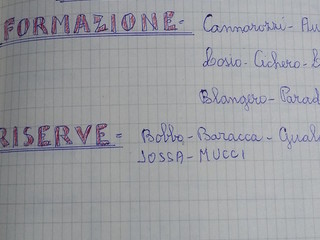 FORMAZIONE= Cannarozzi-
Losio-Cichero-
Blangero-
RISERVE= Bobbo-Baracca-
JOSSA-MUCCI